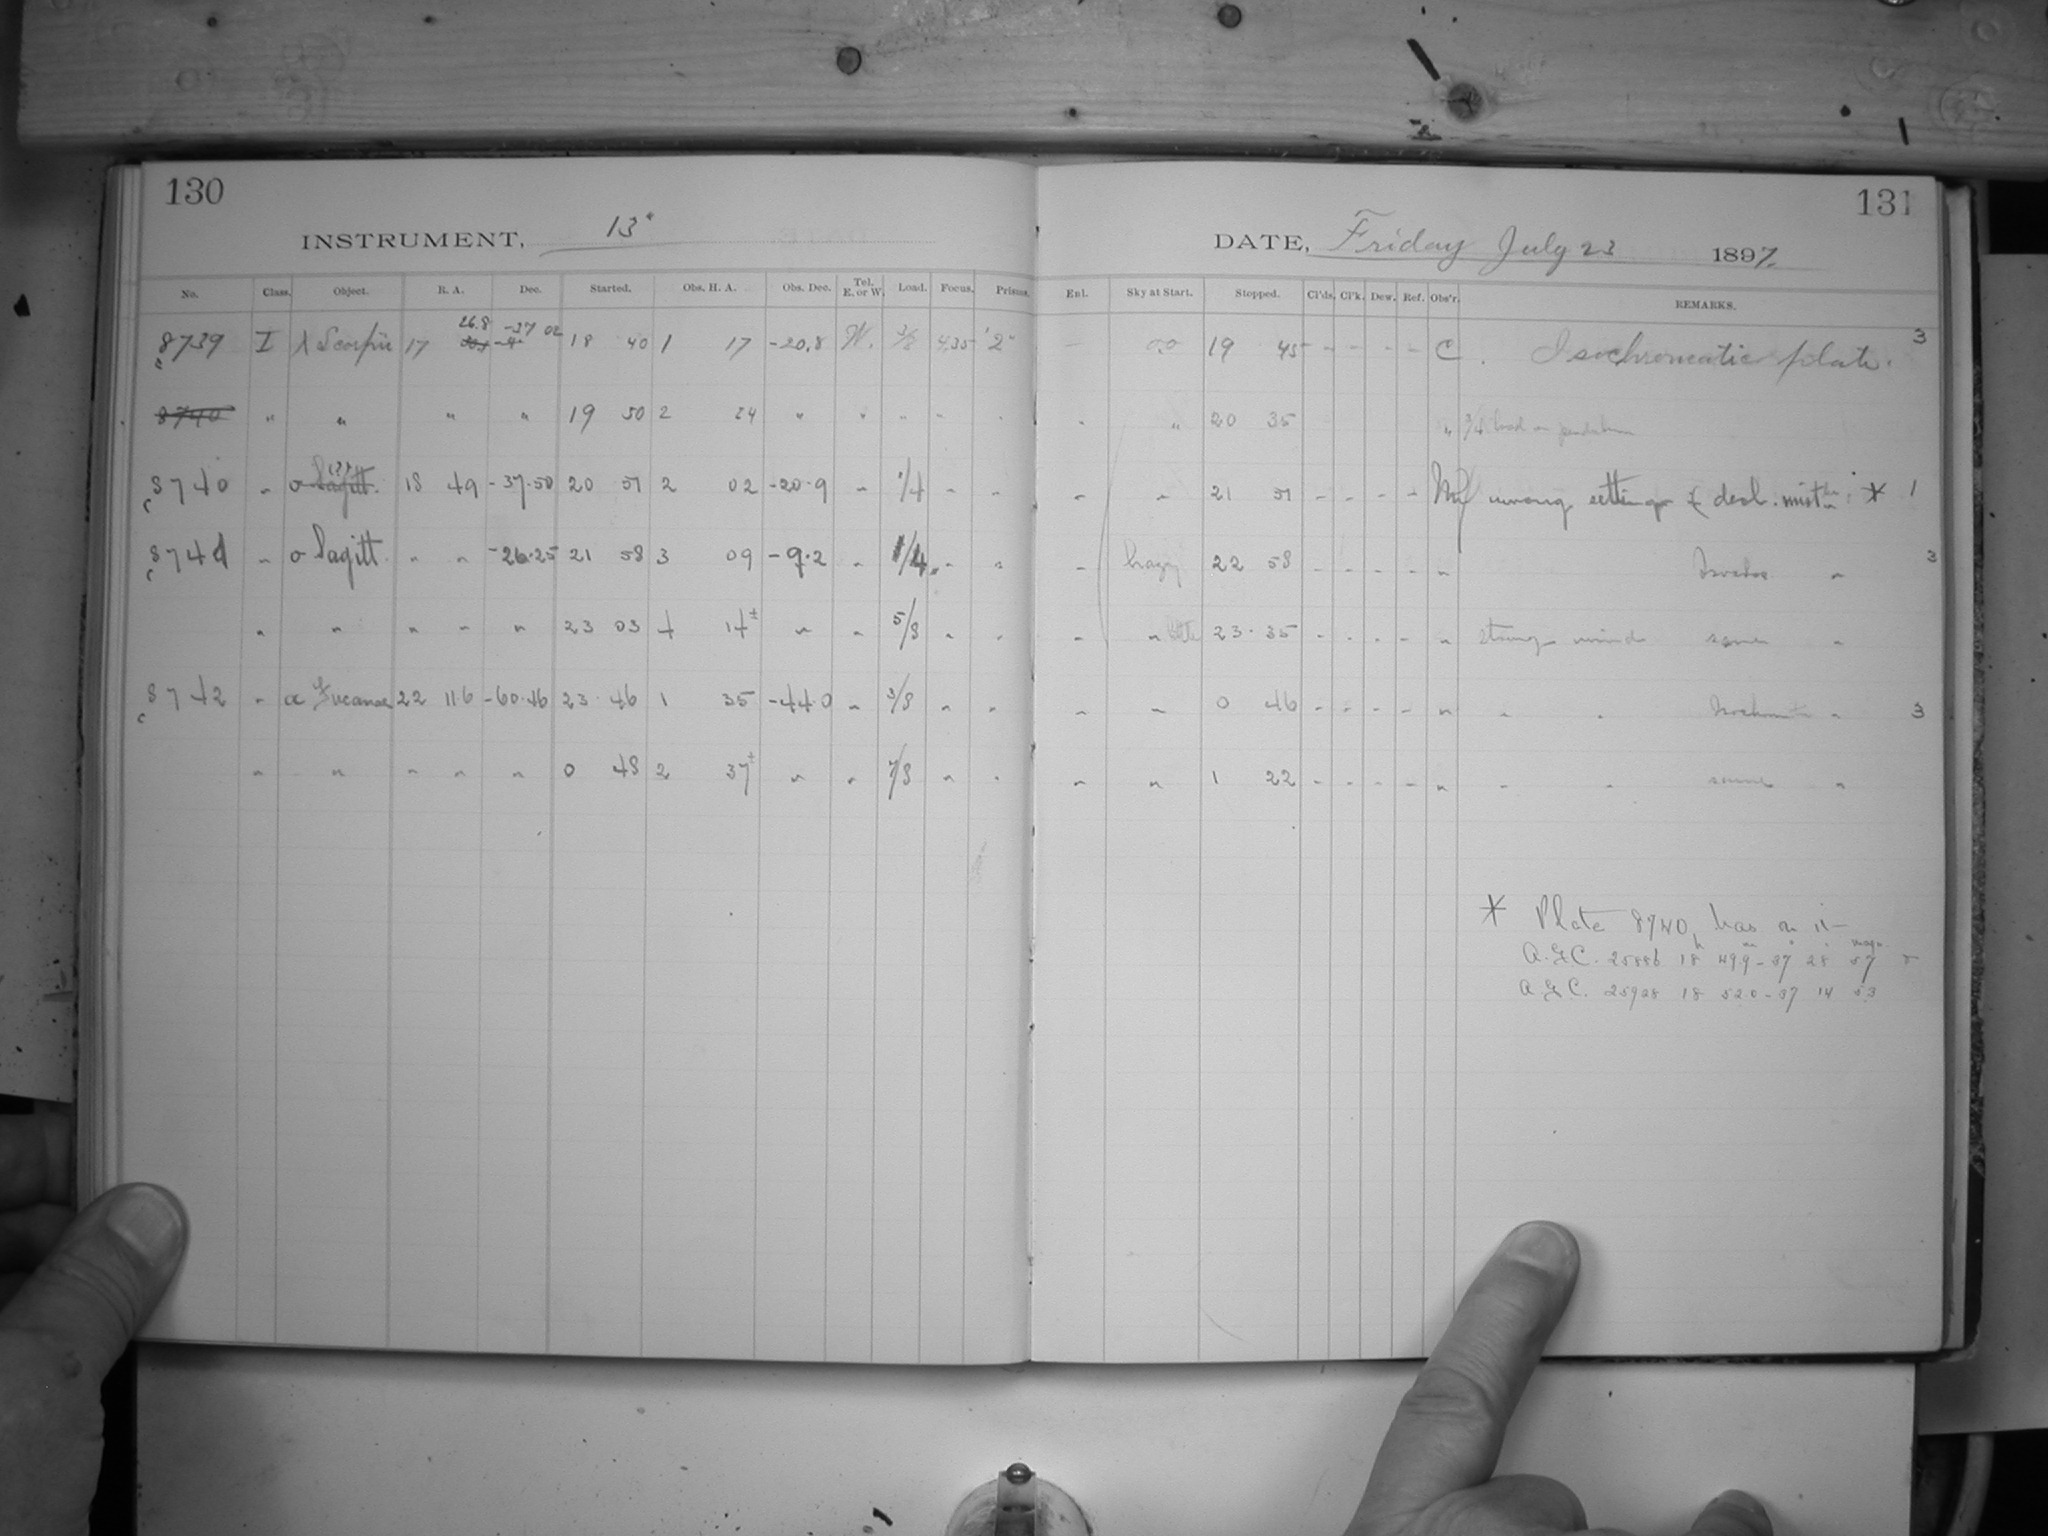 130
131
INSTRUMENT, 13"
DATE, Friday July 23 1897.
No. Class. Object. R. A. Dec. Started. Obs. H. A. Obs. Dec. Tel. E. or W. Load. Focus. Prisms. Enl. Sky at Start. Stopped. Cl'ds. Cl'k. Dew. Ref. Obs'r. REMARKS.
8739 I λ Scorpii 17 26.8 -37 02 18 40 1 17 -20.8 W. 3/8 4.35 "2" 0.0 19 45 - - - - C. Isochromatic plate. 3
8740 " " " " 19 50 2 24 " " " " " 20 35 " 3/4 load on pendulum
8740 " σ Sagitt. (??) 18 49 -37.50 20 51 2 02 -20.9 " 1/4 " " " " 21 51 - - - - wrong setting & decl. * 1
8741 " σ Sagitt. " " -26.25 21 58 3 09 -9.2 " 1/4 " " " hazy 22 58 - - - - " " 3
" " " " " 23 03 4 14± " " 5/8 " " " " 23.35 - - - - " strong wind same "
8742 " α Tucanae 22 11.6 -60.46 23.46 1 35 -44.0 " 3/8 " " " " 0 46 - - - - " " " " 3
" " " " " 0 48 2 37± " " 7/8 " " " " 1 22 - - - - " " " same "
* Plate 8740, has on it—
A.G.C. 25886 18h 49.9m -37° 28' 5.7 magn.
A.G.C. 25928 18 52.0 -37 14 5.3